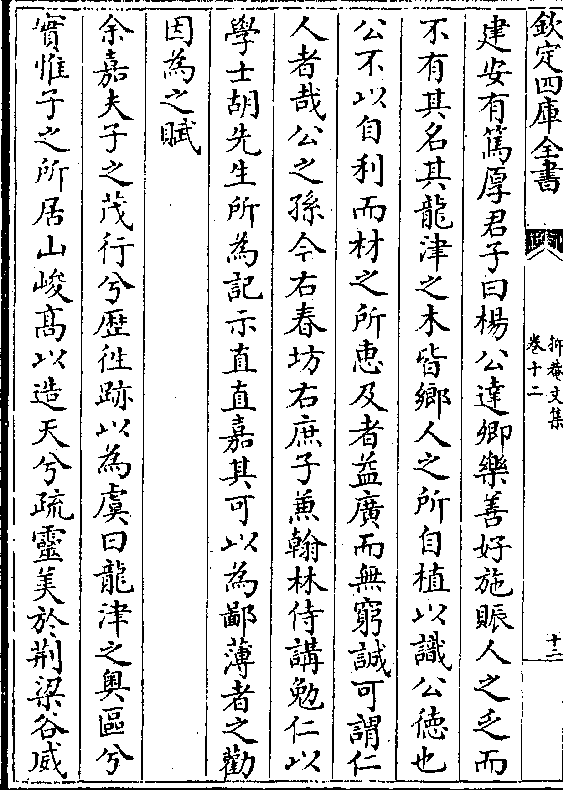 欽定四庫全書
抑菴文集
卷十二
十二
建安有篤厚君子曰楊公達卿樂善好施賑人之乏而
不有其名其龍津之木皆鄉人之所自植以識公徳也
公不以自利而材之所恵及者益廣而無窮誠可謂仁
人者哉公之孫今右春坊右庶子兼翰林侍講勉仁以
學士胡先生所為記示直直嘉其可以為鄙薄者之勸
因為之賦
余嘉夫子之茂行兮歴徃跡以為虞曰龍津之奥區兮
實惟子之所居山峻髙以造天兮疏靈美於荆梁谷威